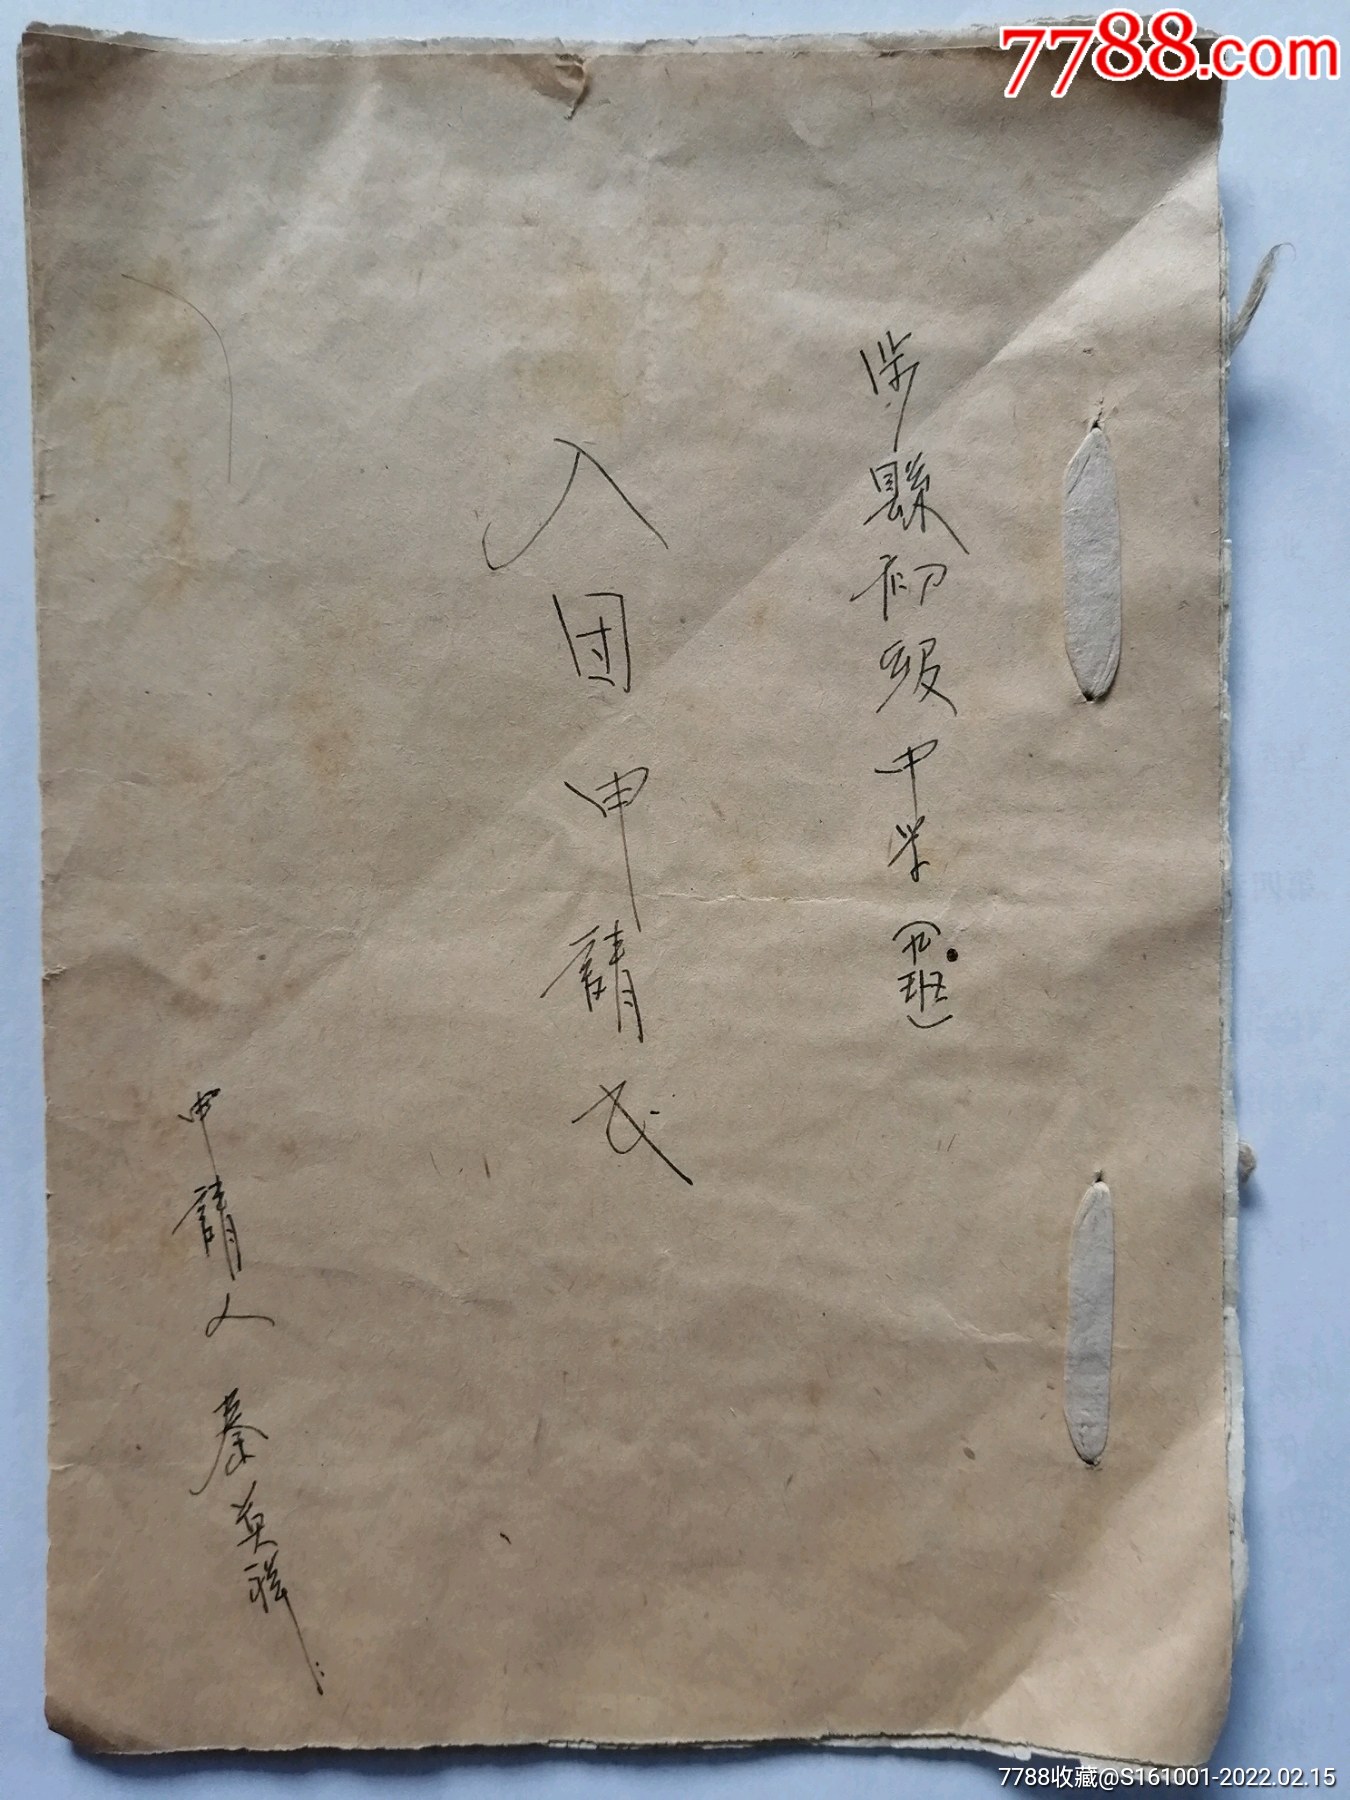 7788.com
涉縣初级中学(九班)
入团申請书
申請人 秦其祥
7788收藏@S161001-2022.02.15